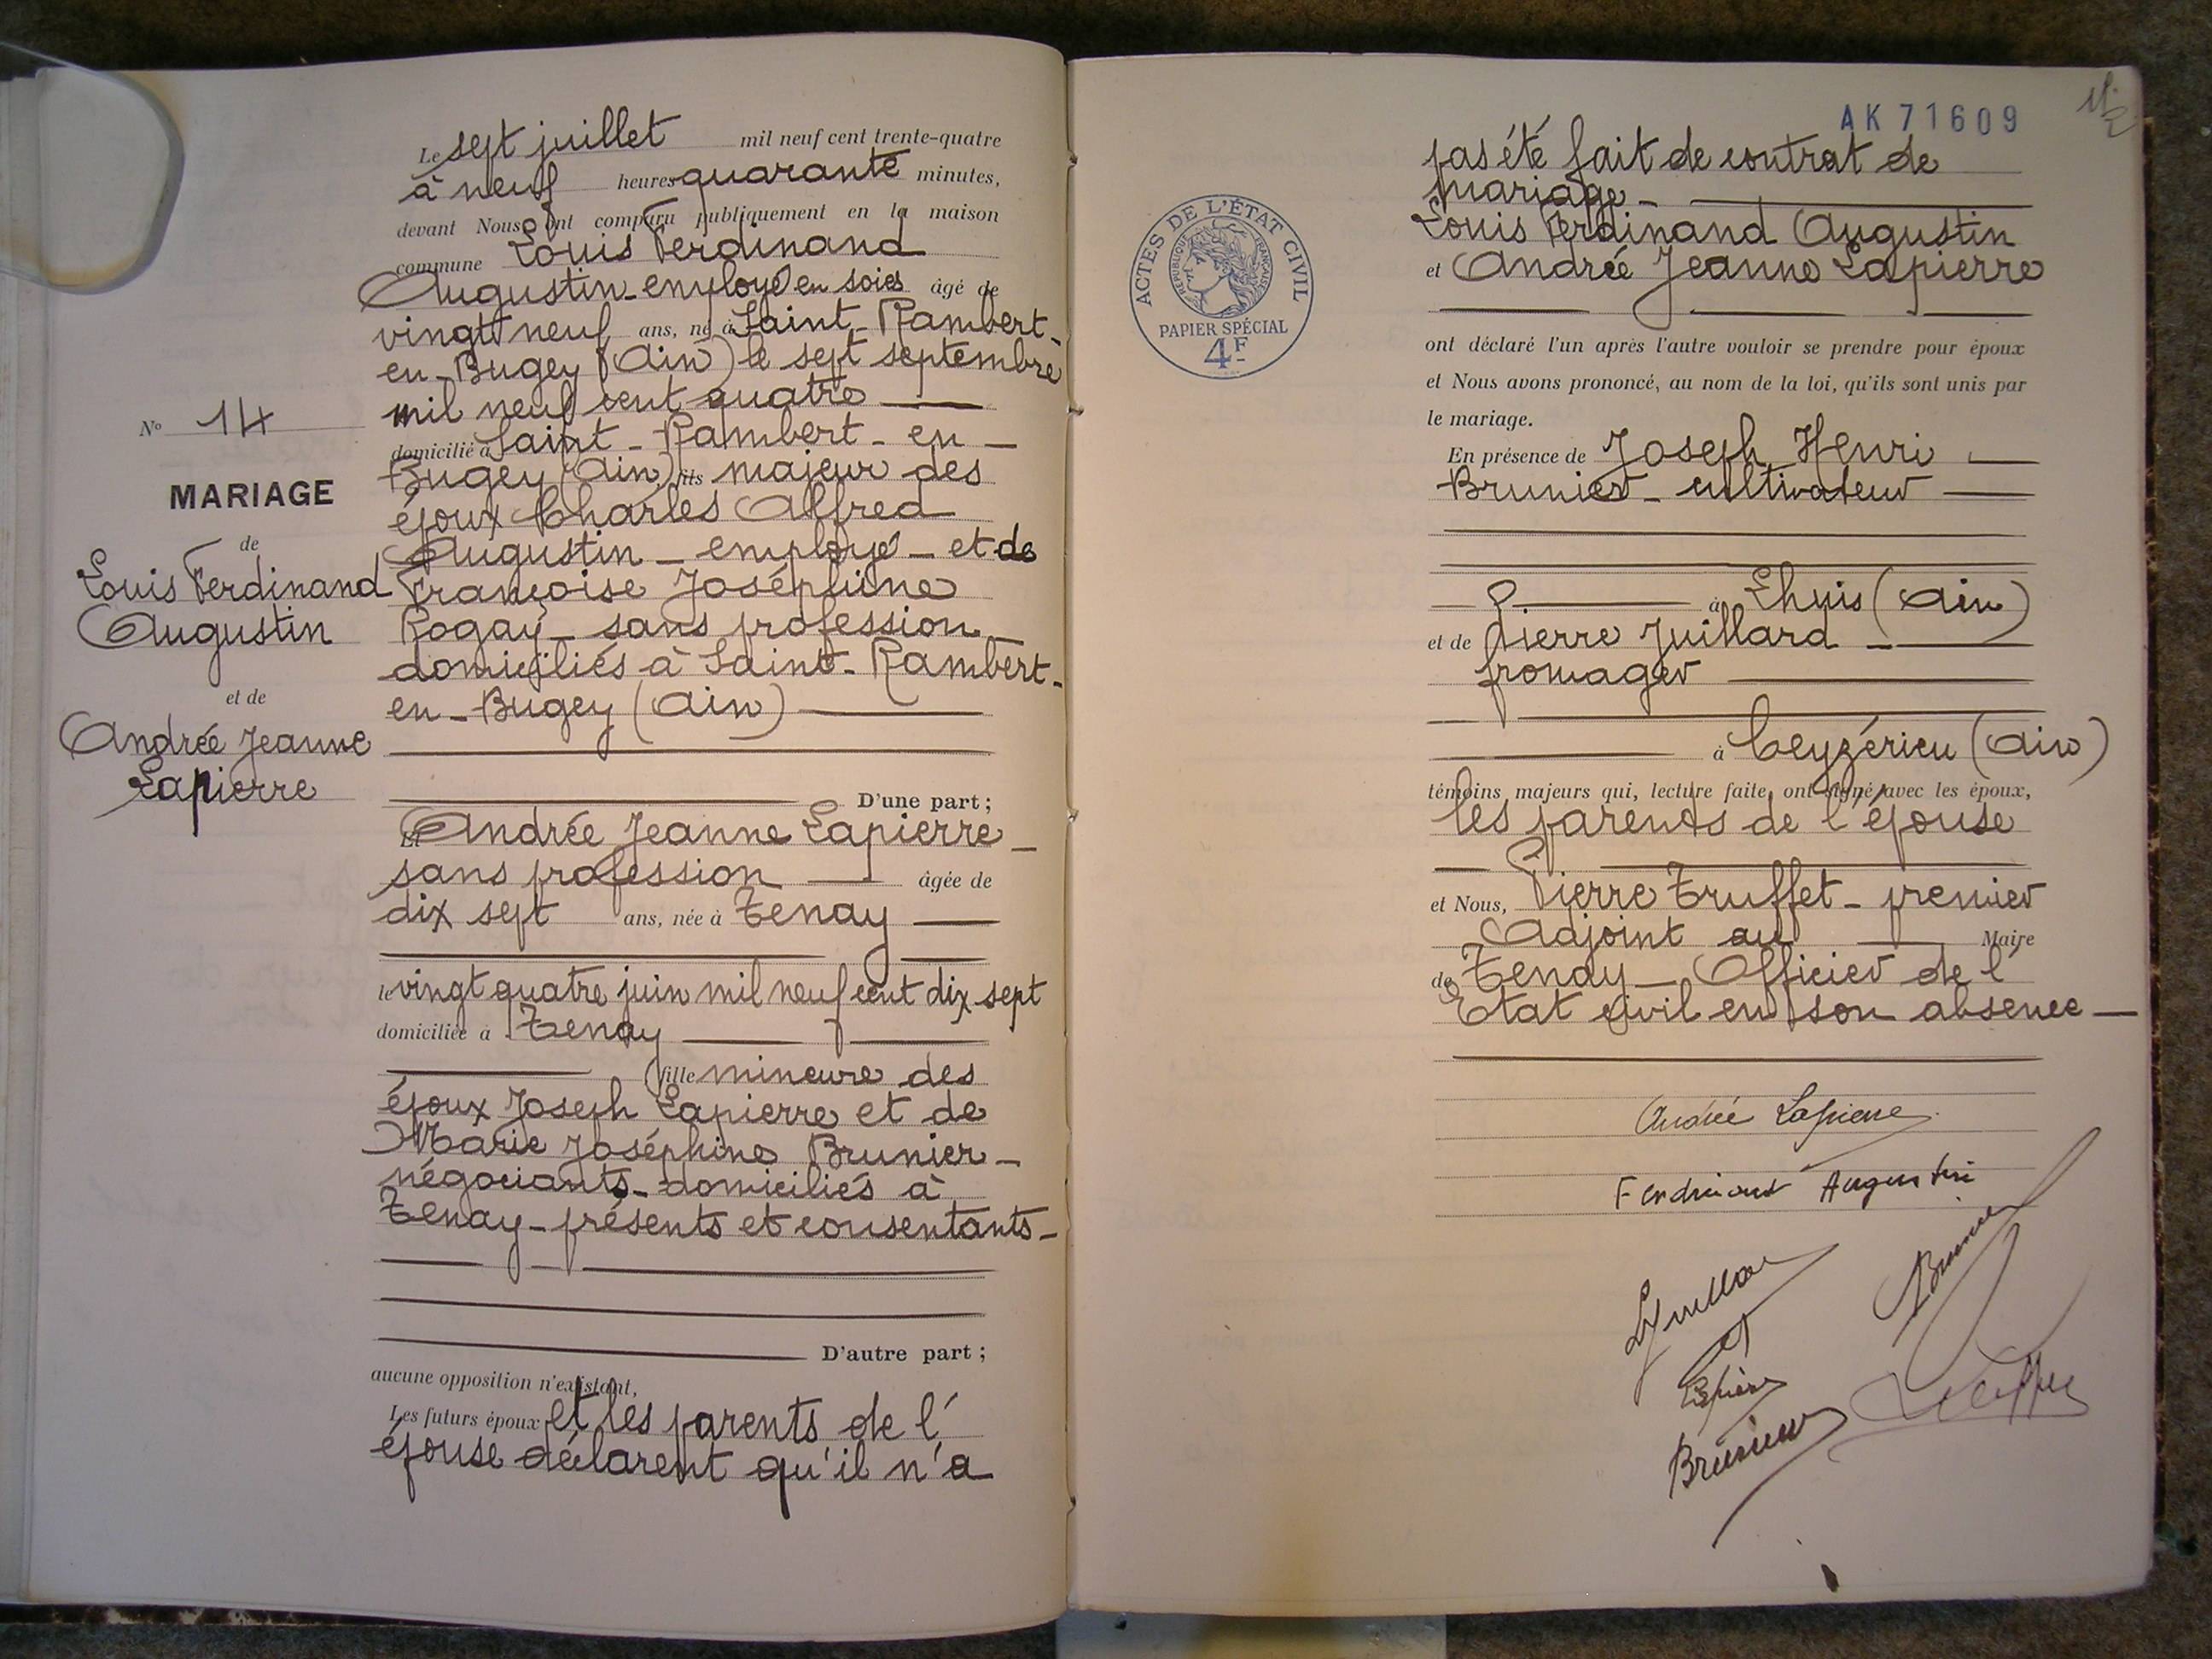 Le sept juillet mil neuf cent trente-quatre
à neuf heures quarante minutes,
devant Nous ont comparu publiquement en la maison
commune Louis Ferdinand
Augustin - employé en soies âgé de
vingt neuf ans, né à Saint-Rambert-
en-Bugey (Ain) le sept septembre
mil neuf cent quatre
domicilié à Saint-Rambert-en-
Bugey (Ain) fils majeur des
époux Charles Alfred
Augustin - employé - et de
Françoise Joséphine
Rogay - sans profession
domiciliés à Saint-Rambert-
en-Bugey (Ain)
D'une part;
Et Andrée Jeanne Lapierre -
sans profession âgée de
dix sept ans, née à Tenay
le vingt quatre juin mil neuf cent dix sept
domiciliée à Tenay
fille mineure des
époux Joseph Lapierre et de
Marie Joséphine Brunier -
négociants - domiciliés à
Tenay - présents et consentants -
D'autre part;
aucune opposition n'existant,
Les futurs époux et les parents de l'
épouse déclarent qu'il n'a
No 14
MARIAGE
de
Louis Ferdinand
Augustin
et de
Andrée Jeanne
Lapierre
ACTES DE L'ÉTAT CIVIL
RÉPUBLIQUE FRANÇAISE
PAPIER SPÉCIAL
4F
AK 71609
pas été fait de contrat de
mariage -
Louis Ferdinand Augustin
et Andrée Jeanne Lapierre
ont déclaré l'un après l'autre vouloir se prendre pour époux
et Nous avons prononcé, au nom de la loi, qu'ils sont unis par
le mariage.
En présence de Joseph Henri
Brunier - cultivateur
à Lhuis (Ain)
et de Pierre Juillard -
fromager
à Ceyzérieu (Ain)
témoins majeurs qui, lecture faite, ont signé avec les époux,
les parents de l'épouse
et Nous, Pierre Truffet - premier
Adjoint au Maire
de Tenay - Officier de l'
Etat civil en son absence -
Andrée Lapierre
Ferdinand Augustin
Brunier
Lapierre
Brunier
Truffet